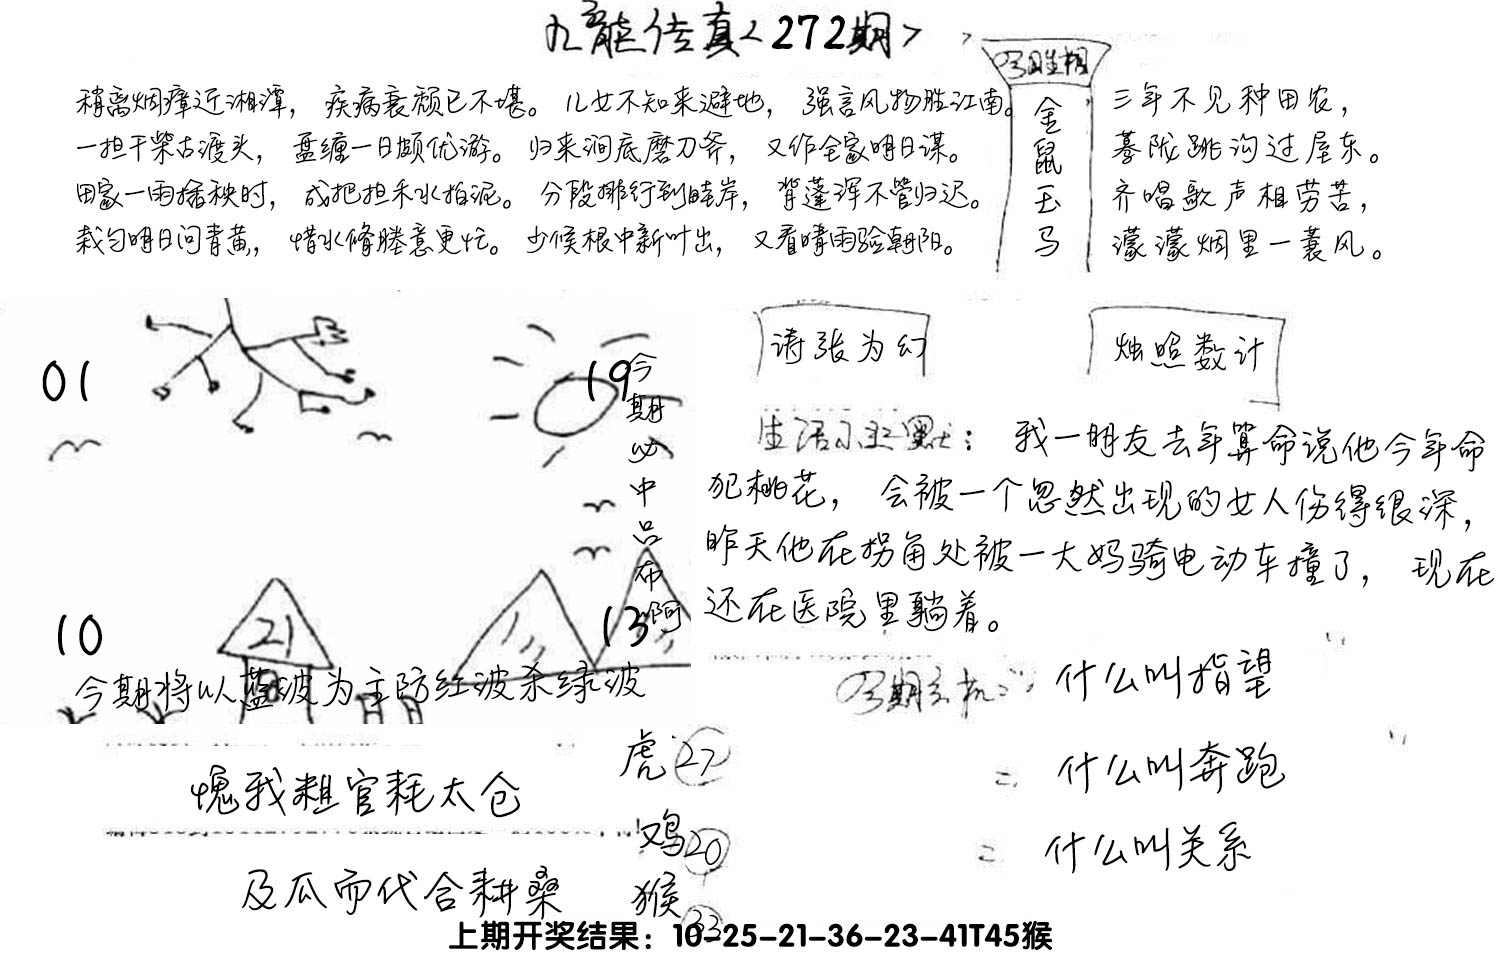 九龙传真<272期>
今期生相
稍离烟瘴近湘潭，疾病衰颓已不堪。儿女不知来避地，强言风物胜江南。
一担干柴古渡头，盘缠一日颇优游。归来涧底磨刀斧，又作全家明日谋。
田家一雨插秧时，成把担禾水拍泥。分段排行到畦岸，背蓬浑不管归迟。
栽匀明日问青黄，惜水脩塍意更忙。少候根中新叶出，又看晴雨验朝阳。
金
鼠
玉
马
三年不见种田农，
蓦陇跳沟过屋东。
齐唱歌声相劳苦，
濛濛烟里一蓑风。
01
19
今期必中品布啊
10
21
13
今期将以蓝波为主防红波杀绿波
诪张为幻
烛照数计
生活小幽默：我一朋友去年算命说他今年命
犯桃花，会被一个忽然出现的女人伤得很深，
昨天他在拐角处被一大妈骑电动车撞了，现在
还在医院里躺着。
今期玄机：什么叫指望
什么叫奔跑
什么叫关系
愧我粗官耗太仓
及瓜而代合耕桑
虎27
鸡20
猴33
上期开奖结果：10-25-21-36-23-41T45猴